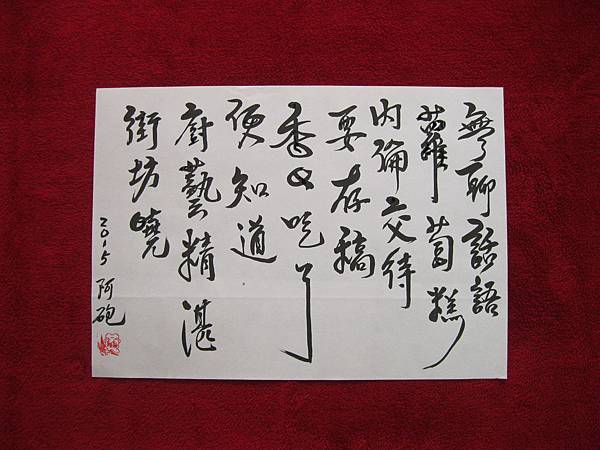 無聊話語
蘿蔔糕
內倫交待
要存稿
香女吃了
便知道
廚藝精湛
街坊曉
2015 阿砲